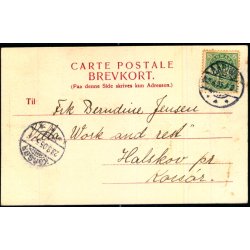 CARTE POSTALE
BREVKORT.
(Paa denne Side skrives kun Adressen.)
Til
Frk Berndine Jensen
"Work and rest"
Halskov pr
Korsør.